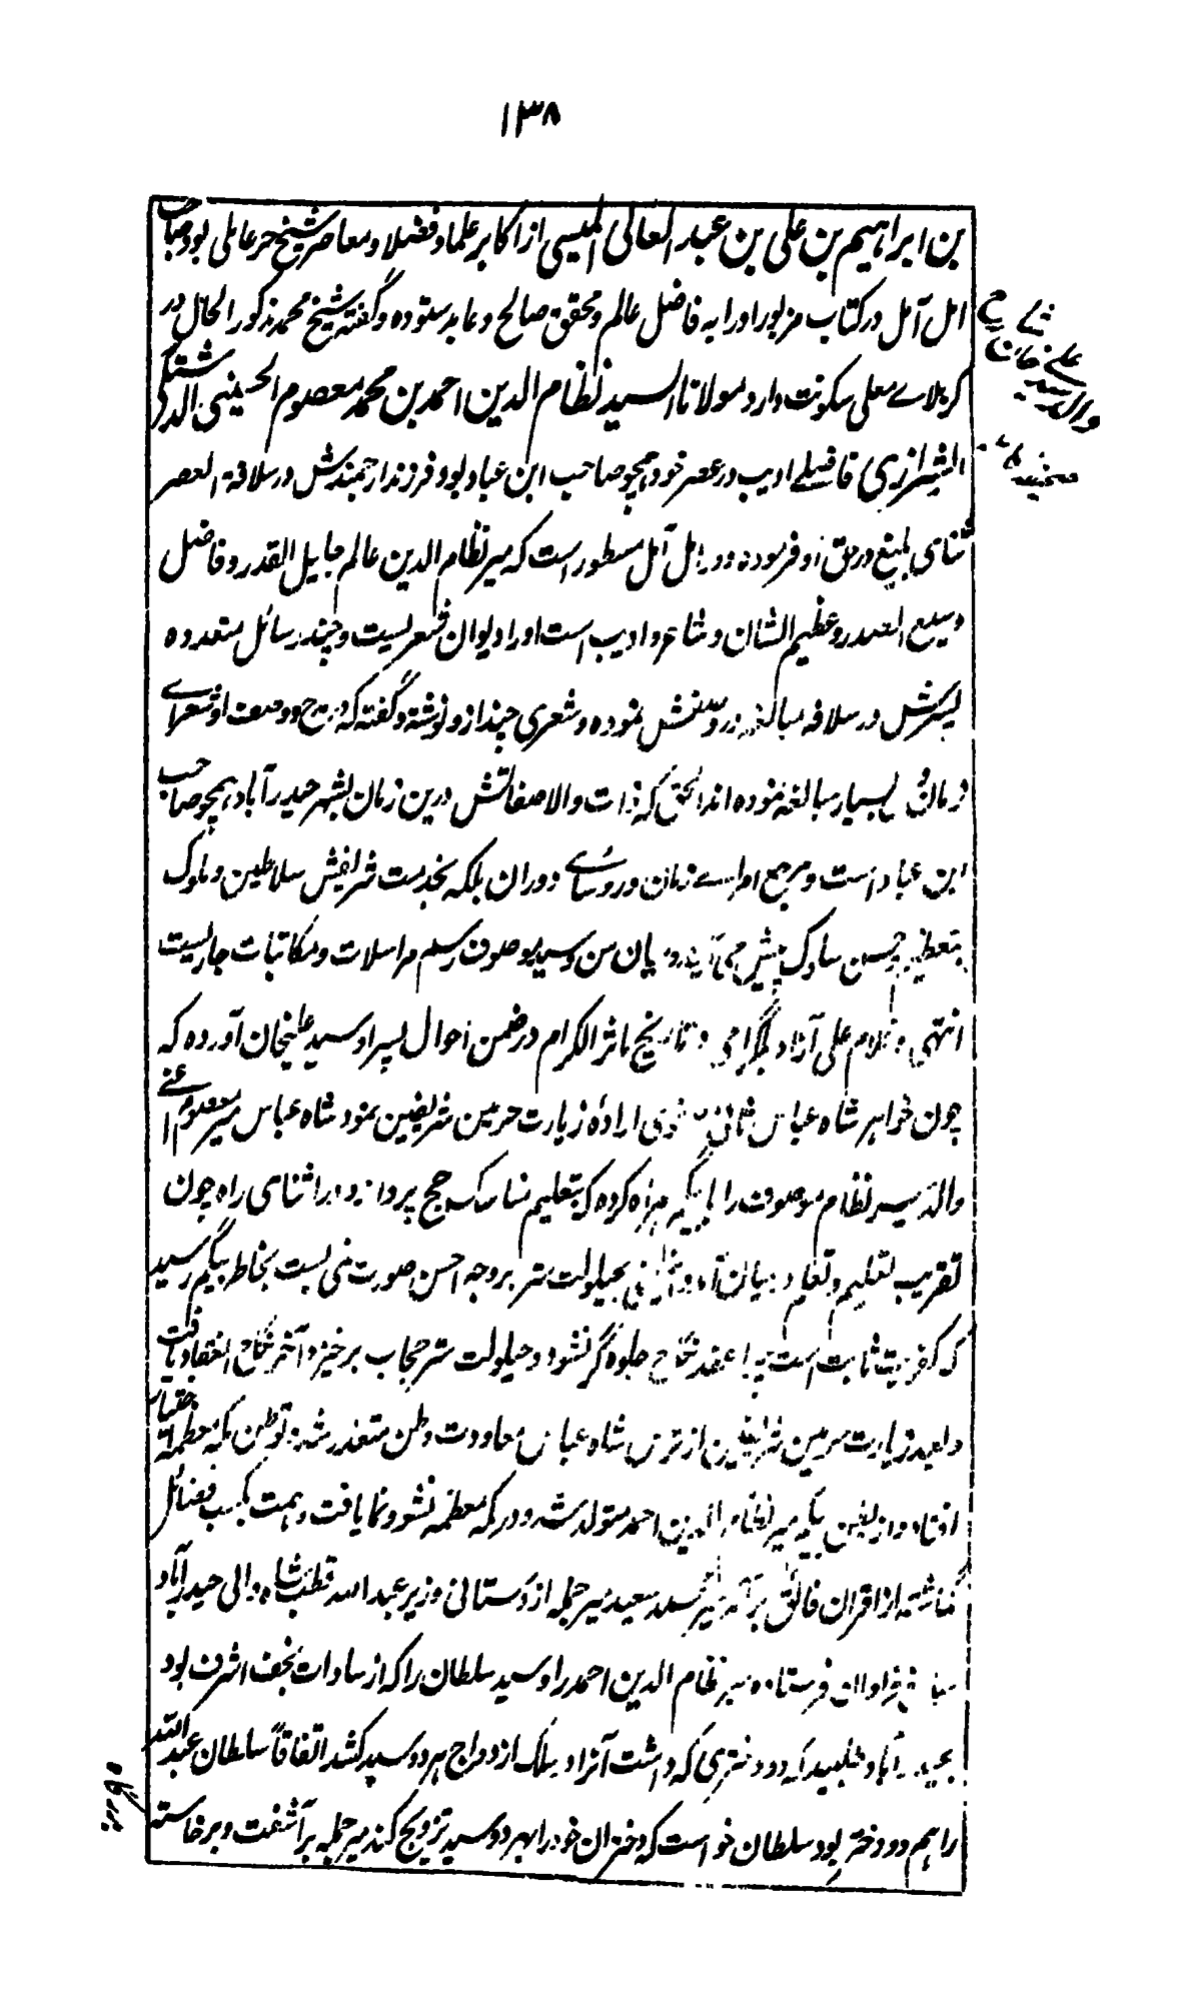 ۱۳۸
بن ابراہیم بن علی بن عبد العالی المیسی از اکابر علما و فضلا و معاصر شیخ حر عاملی بود صاحب
امل آمل در کتاب مزبور اورا به فاضل عالم و محقق صالح و عابد ستوده و گفته شیخ محمد مذکور الحال در
کربلاے معلی سکونت دارد مولانا السید نظام الدین احمد بن محمد معصوم الحسینی الدشتکی
الشیرازی فاضلے ادیب در عصر خود همچو صاحب ابن عباد بود فرزند ارجمندش در سلافة العصر
ثنای بلیغ در حق او فرموده و در امل آمل مسطور است که میر نظام الدین عالم جلیل القدر و فاضل
وسیع الصدر و عظیم الشان و شاعر و ادیب است او را دیوان شعریست و چند رسائل متعدده
پسرش در سلافه مبالغه در وصفش نموده و شعری چند از و نوشته و گفته که در مدح و وصف او شعراے
زمان بسیار مبالغه نموده اند الحق که ذات والا صفاتش درین زمان بشهر حیدرآباد همچو صاحب
ابن عباد است و مرجع امراے زمان و روساے دوران بلکه بخدمت شریفش سلاطین و ملوک
بتعظیم و حسن سلوک پیش می آیند و میان من و سید موصوف رسم مراسلات و مکاتبات جاریست
انتهی و غلام علی آزاد بلگرامی در تاریخ ماثر الکرام در ضمن احوال پسر او سید علیخان آورده که
چون خواہر شاه عباس ثانی صفوی ارادۀ زیارت حرمین شریفین نمود شاه عباس میر معصوم اعنے
والد میر نظام موصوف را با بیگم همراه کرده که بتعلیم مناسک حج پردازد در اثنای راه چون
تقریب تعلیم و تعلم درمیان آمد و بحیلولت ستر بروجه احسن صورت نمی بست بخاطر بیگم رسید
که کفویت ثابت است چرا عقد نکاح جلوه گر نشود و حیلولت ستر حجاب برخیزد آخر نکاح انعقاد یافت
و بعد زیارت حرمین شریفین از ترس شاه عباس معاودت وطن متعذر شد و توطن مکه معظمه اختیار
افتاد و از بطن بیگم میر نظام الدین احمد متولد شد و در مکه معظمه نشو و نما یافت و ہمت بکسب فضائل
گماشته از اقران فائق برآمد میر محمد سعید میر جمله اردستانی وزیر عبد الله قطب شاه والی حیدرآباد
مبالغ فراوان فرستاده میر نظام الدین احمد را و سید سلطان را که از سادات نجف اشرف بود
بحیدرآباد طلبید که دو دختری که داشت آنرا در سلک ازدواج ہر دو سید کشد اتفاقاً سلطان عبد الله
را ہم دو دختر بود سلطان خواست که دختران خود را بہر دو سید تزویج کند میر جمله بر آشفت و برخاسته
والد سید علی خان